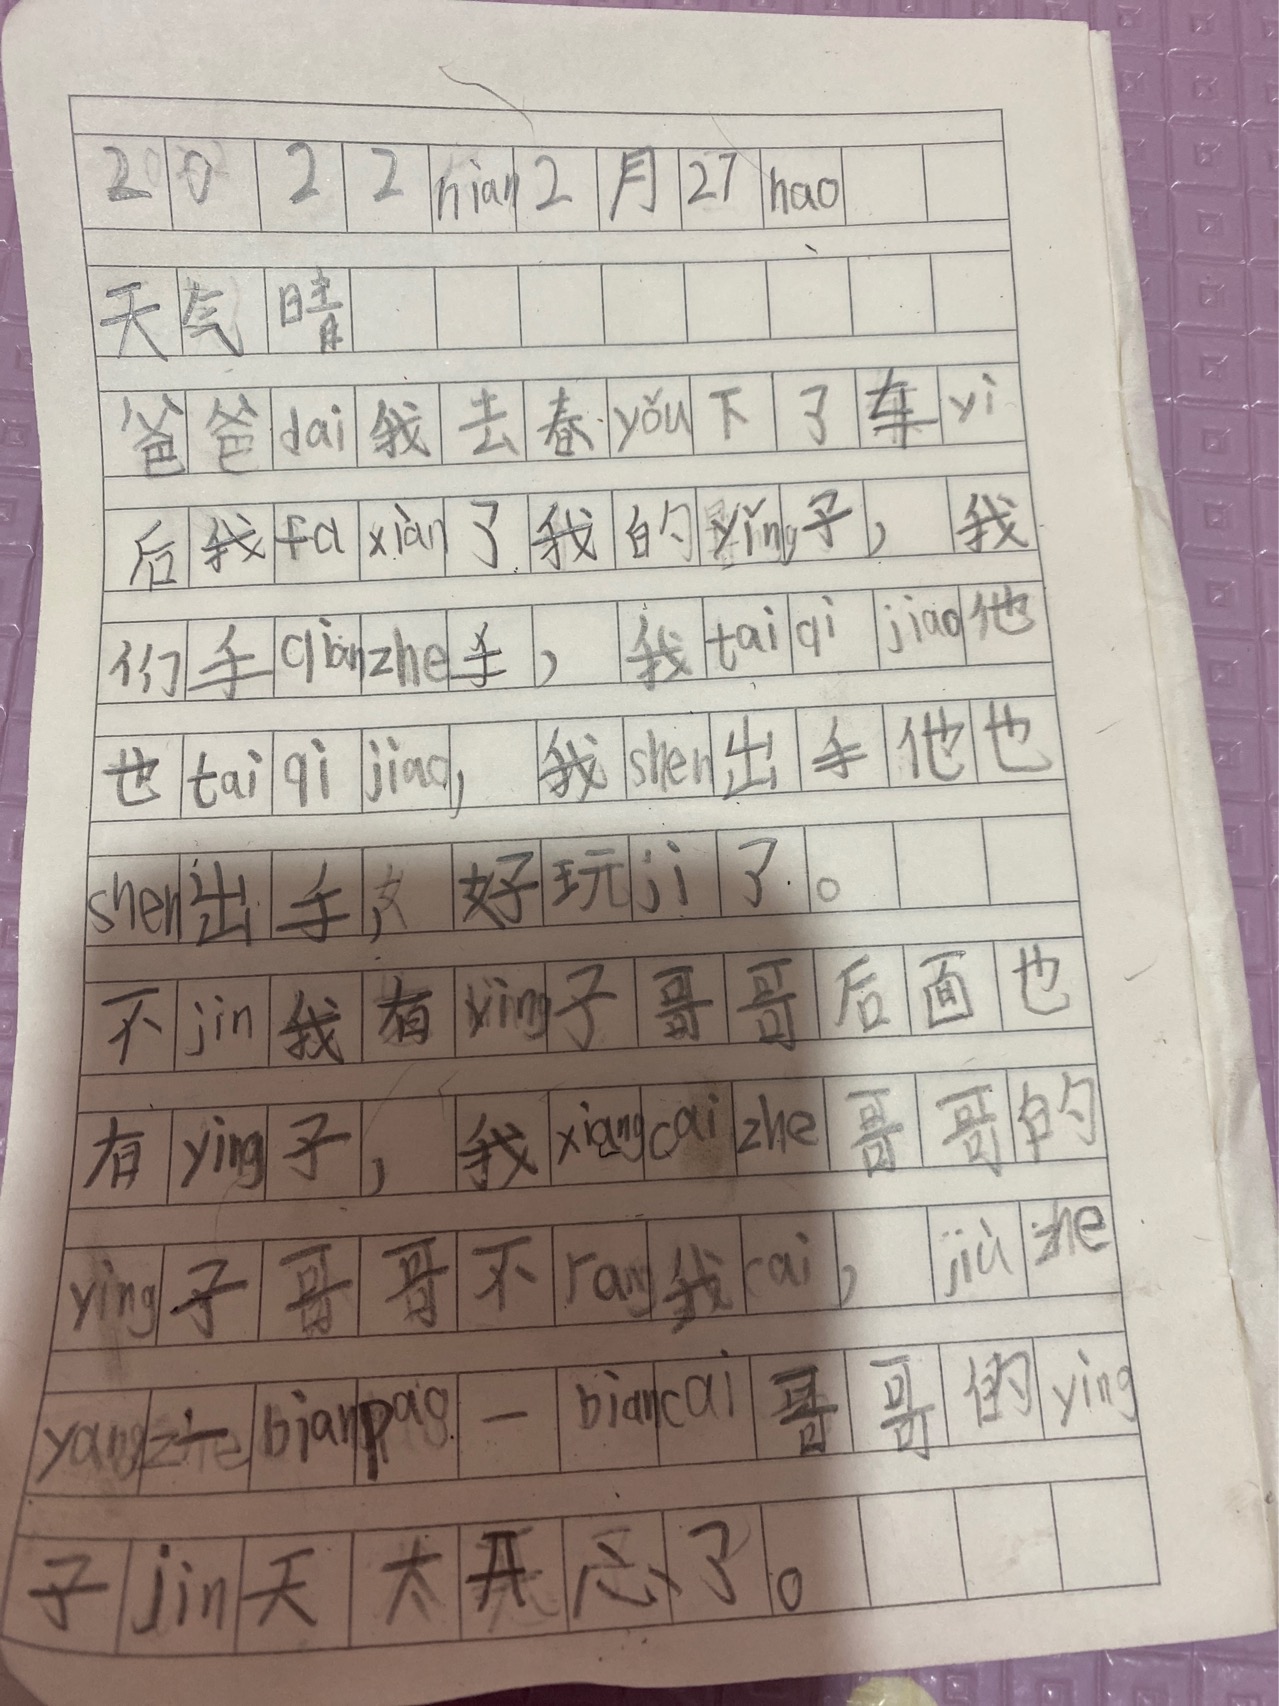 2022nian2月27hao
天气晴
爸爸dai我去春yǒu下了车yì
后我faxiàn了我的yǐng子，我
们手qianzhe手，我taiqijiao他
也taiqijiao，我shen出手他也
shen出手，好玩ji了。
不jin我有ying子哥哥后面也
有ying子，我xiangcaizhe哥哥的
ying子哥哥不rang我cai，jiùzhe
yangzhebianpao一biancai哥哥的ying
子jin天太开心了。